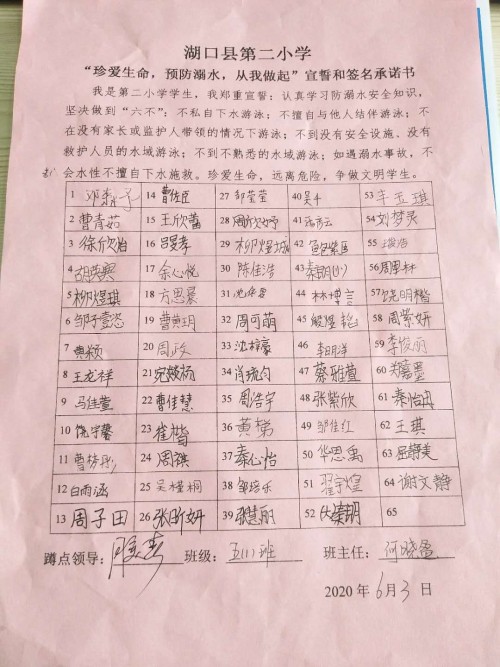 湖口县第二小学
“珍爱生命，预防溺水，从我做起”宣誓和签名承诺书
我是第二小学学生，我郑重宣誓：认真学习防溺水安全知识，
坚决做到“六不”：不私自下水游泳；不擅自与他人结伴游泳；不
在没有家长或监护人带领的情况下游泳；不到没有安全设施、没有
救护人员的水域游泳；不到不熟悉的水域游泳；如遇溺水事故，不
会水性不擅自下水施救。珍爱生命，远离危险，争做文明学生。
1 14 曹佐臣 27 邹莹莹 40 吴 53 玉琪
2 曹青茹 15 王欣蕾 28 周欣妤 41 54 刘梦灵
3 徐欣怡 16 吕旻孝 29 柳煜城 42 55
4 胡 17 余心悦 30 陈佳浩 43 秦明 56 周思林
5 柳煜琪 18 方思宸 31 44 林博言 57 饶明楷
6 邹子 19 曹典玥 32 周可萌 45 殷煜韬 58 周紫妍
7 典颖 20 周政 33 沈梓豪 46 李明洋 59 李俊丽
8 王龙祥 21 宛颖杨 34 肖琬钧 47 蔡雅萱 60 郑嘉墨
9 马佳萱 22 曹佳慧 35 周浩宇 48 张紫欣 61 秦怡冉
10 饶宇馨 23 崔楷 36 黄 49 邹佳红 62 王琪
11 曹梦彤 24 周祺 37 秦心怡 50 华思禹 63 屈静美
12 白雨涵 25 吴槿桐 38 邹培乐 51 翟宇煌 64 谢文静
13 周子田 26 张昕妍 39 张慧丽 52 65
蹲点领导： 班级：五(1)班 班主任：何晓
2020 年 6月3 日